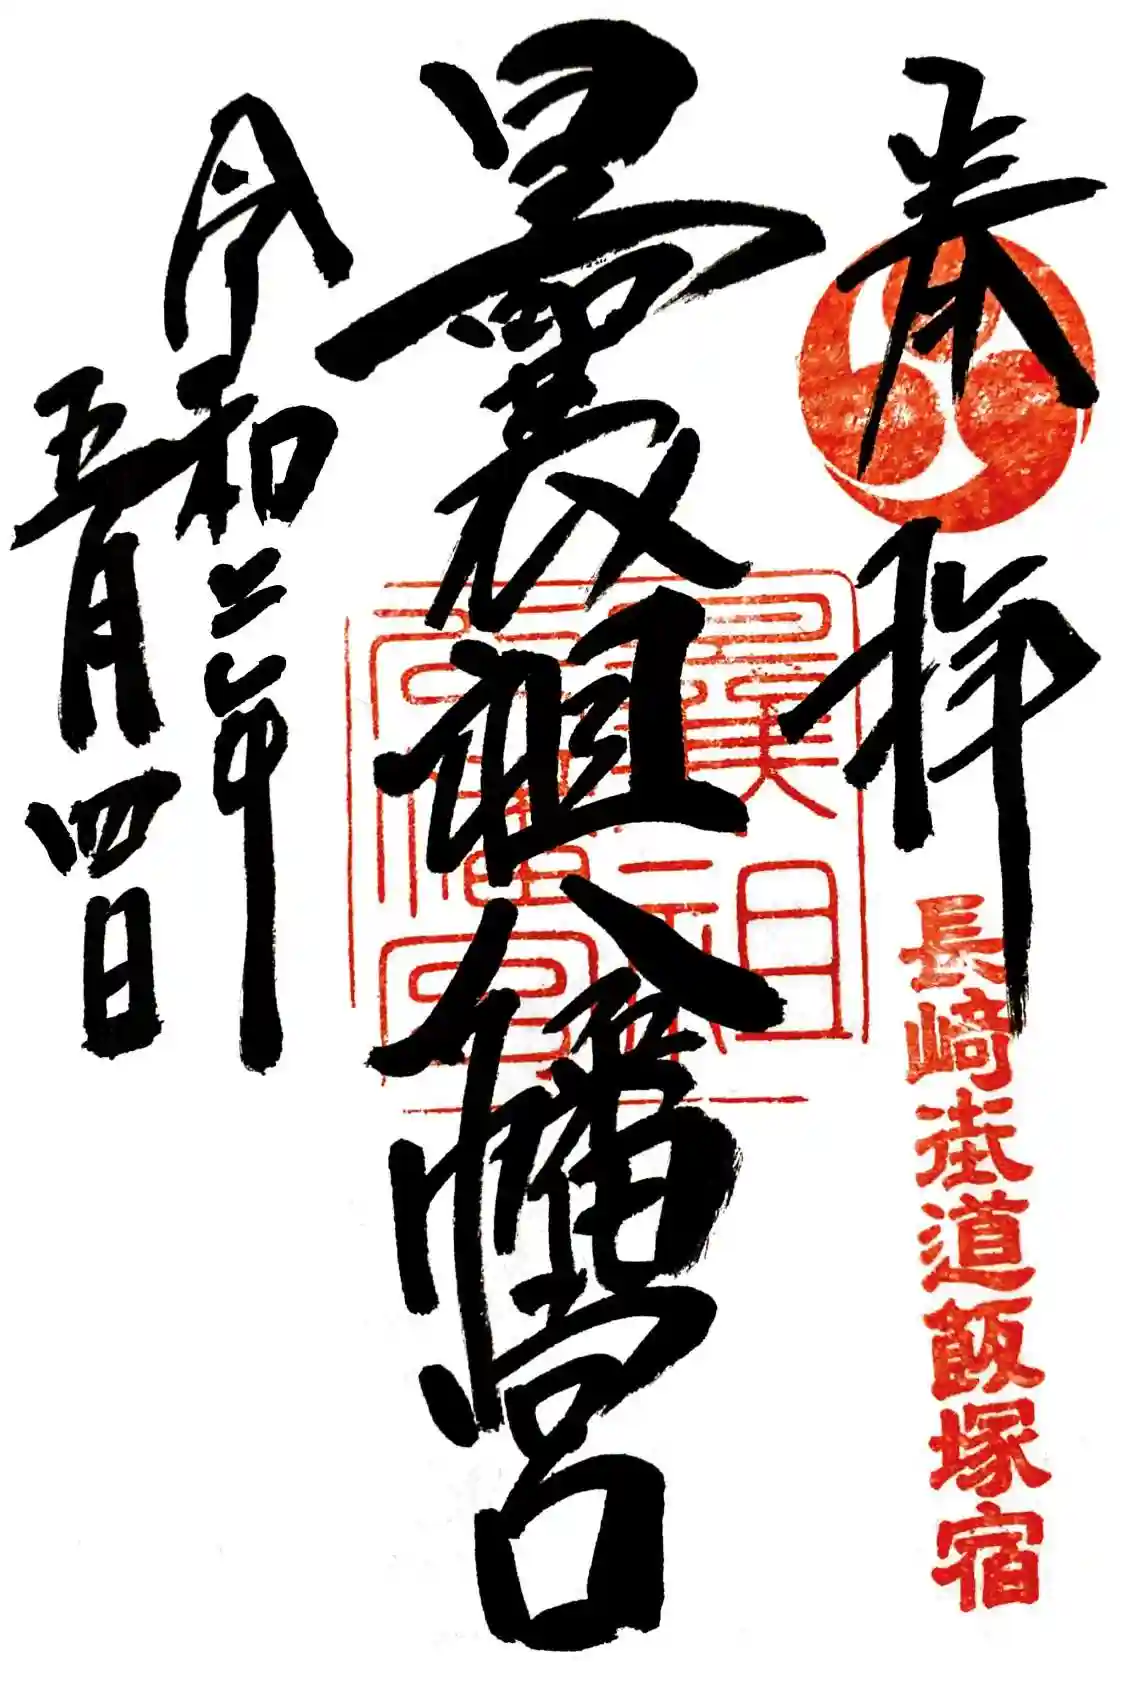 奉拝
長崎街道飯塚宿
曩祖八幡宮
曩祖八幡宮
令和二年
五月四日